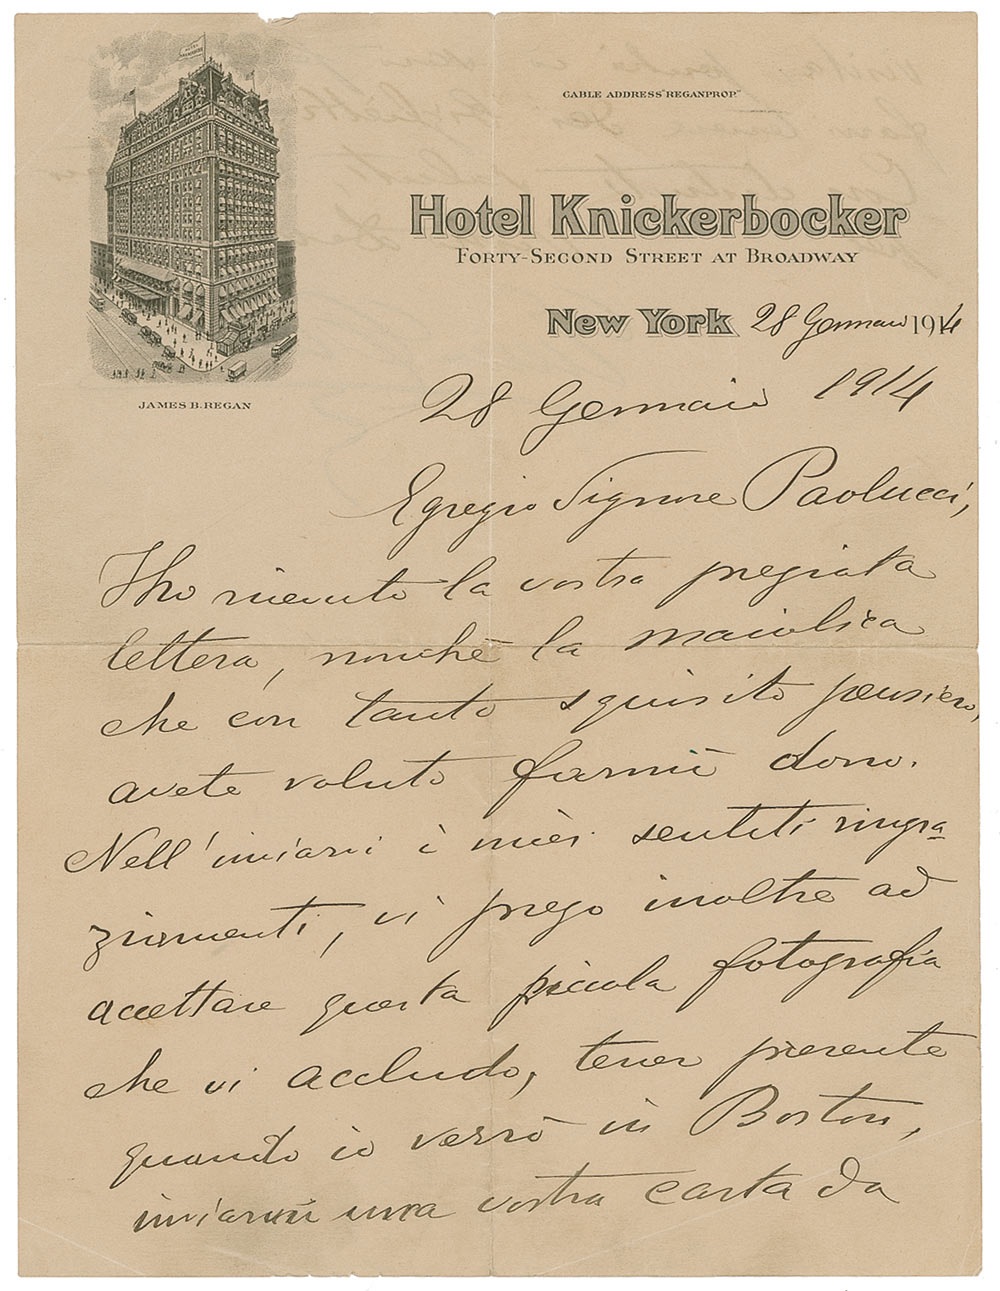 CABLE ADDRESS "REGANPROP."
Hotel Knickerbocker
FORTY-SECOND STREET AT BROADWAY
New York 28 Gennaio 1914
JAMES B. REGAN
28 Gennaio 1914
Egregio Signore Paolucci,
Ho ricevuto la vostra pregiata
lettera, nonchè la maiolica
che con tanto squisito pensiero,
avete voluto farmi dono.
Nell'inviarvi i miei sentiti ringra
ziamenti, vi prego inoltre ad
accettare questa piccola fotografia
che vi accludo, tener presente
quando io verrò in Boston,
inviarmi una vostra carta da